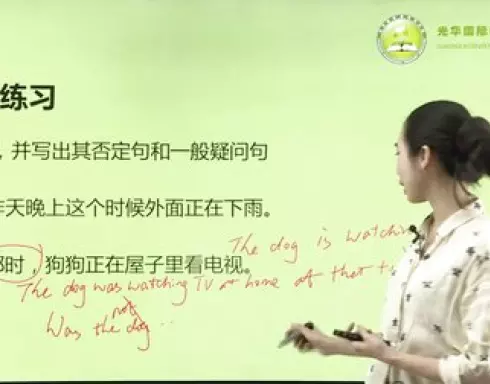 光华国际
练习
，并写出其否定句和一般疑问句
昨天晚上这个时候外面正在下雨。
那时，狗狗正在屋子里看电视。
The dog is watching
The dog was watching TV at home at that
not
Was the dog ...